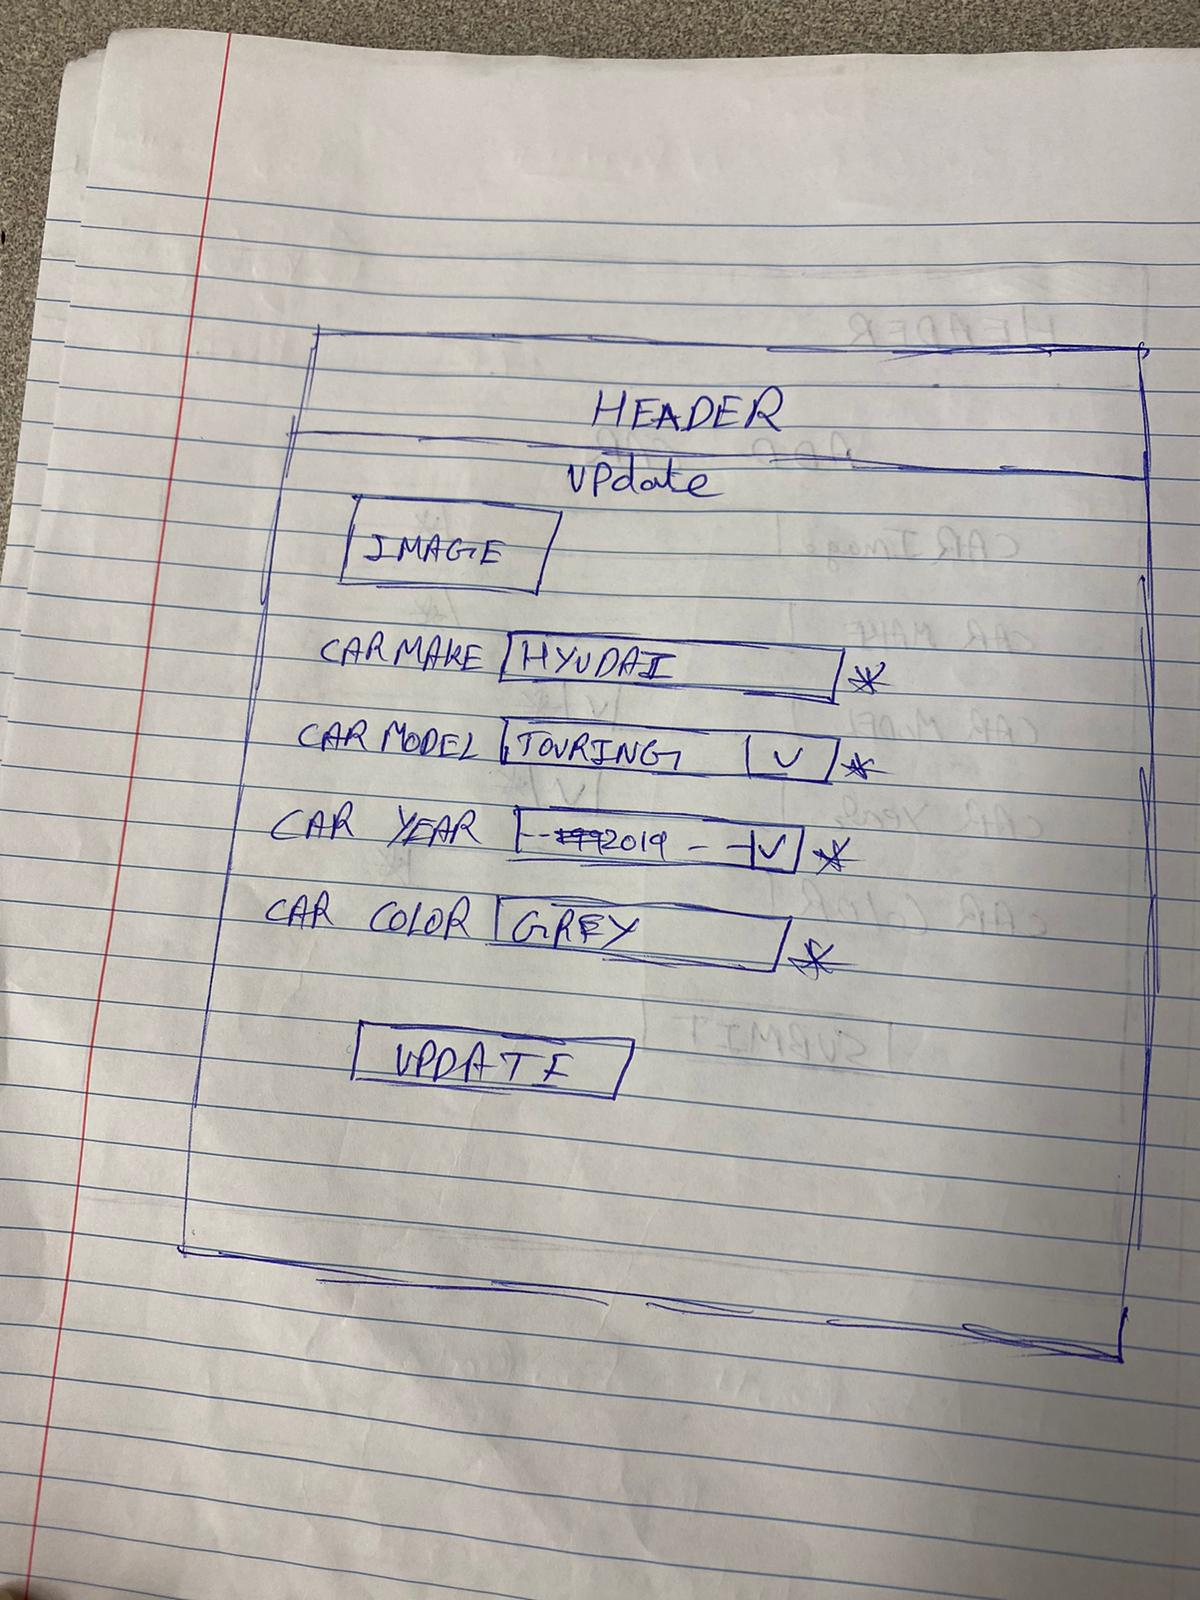 HEADER
UPdate
IMAGE
CAR MAKE HYUDAI *
CAR MODEL TOURING V *
CAR YEAR -- 2019 - - V *
CAR COLOR GREY *
UPDATE